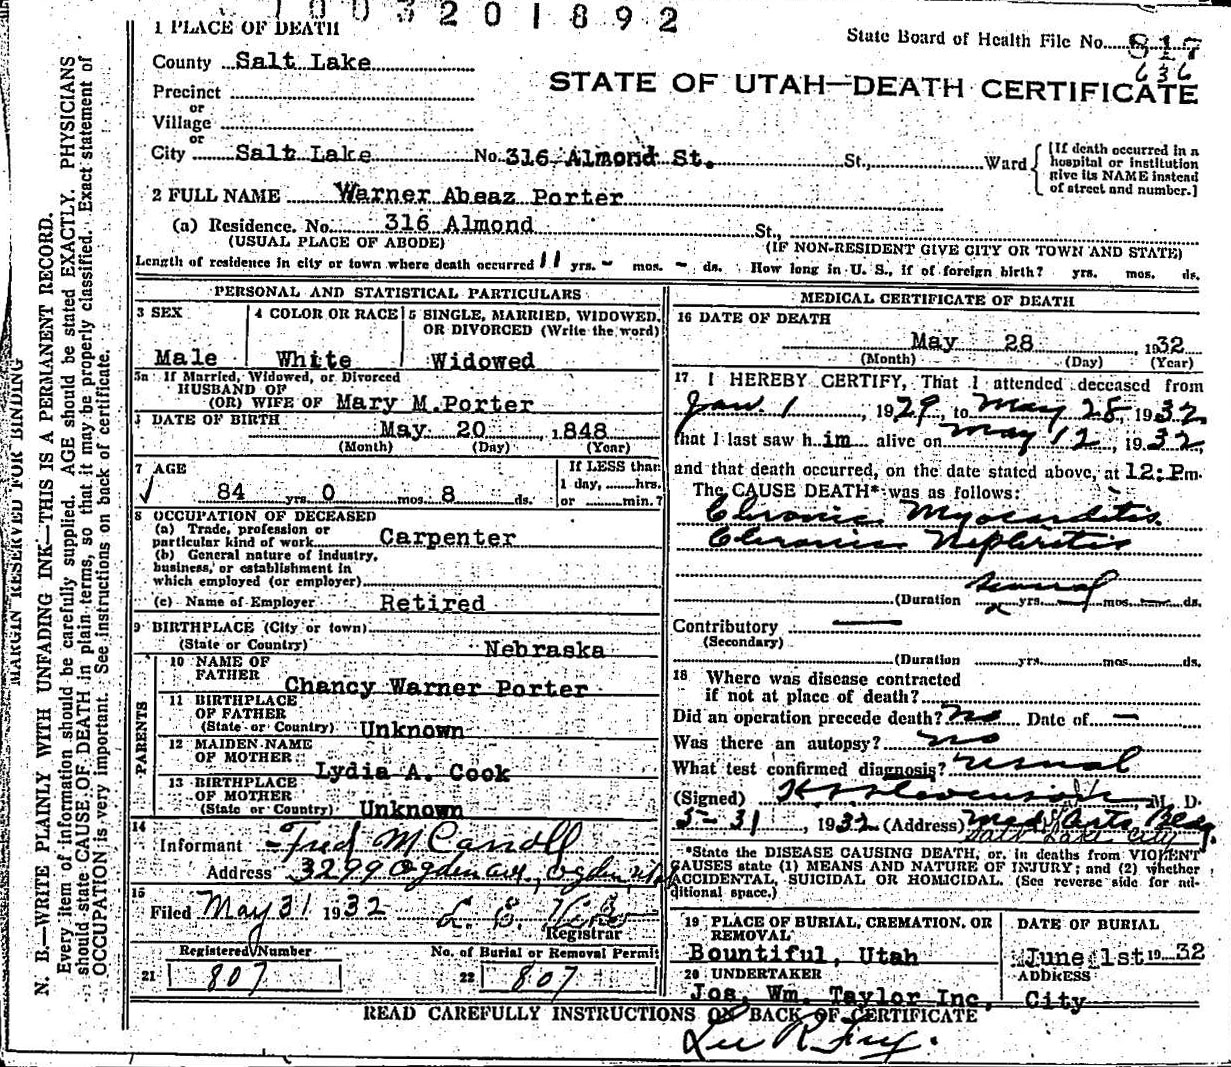 1003201892
1 PLACE OF DEATH
State Board of Health File No. 817
636
County Salt Lake
STATE OF UTAH—DEATH CERTIFICATE
Precinct
or
Village
or
City Salt Lake No. 316 Almond St. St., Ward
[If death occurred in a
hospital or institution
give its NAME instead
of street and number.]
2 FULL NAME Warner Abeaz Porter
(a) Residence. No. 316 Almond St.,
(USUAL PLACE OF ABODE) (IF NON-RESIDENT GIVE CITY OR TOWN AND STATE)
Length of residence in city or town where death occurred 11 yrs. - mos. - ds. How long in U. S., if of foreign birth? yrs. mos. ds.
PERSONAL AND STATISTICAL PARTICULARS
3 SEX
Male
4 COLOR OR RACE
White
5 SINGLE, MARRIED, WIDOWED,
OR DIVORCED (Write the word)
Widowed
5a If Married, Widowed, or Divorced
HUSBAND OF
(OR) WIFE OF Mary M.Porter
DATE OF BIRTH
May 20 , 1848
(Month) (Day) (Year)
7 AGE
✓ 84 yrs 0 mos. 8 ds.
If LESS than
1 day, hrs.
or min.?
8 OCCUPATION OF DECEASED
(a) Trade, profession or
particular kind of work Carpenter
(b) General nature of industry,
business, or establishment in
which employed (or employer)
(c) Name of Employer Retired
9 BIRTHPLACE (City or town)
(State or Country) Nebraska
PARENTS
10 NAME OF
FATHER Chancy Warner Porter
11 BIRTHPLACE
OF FATHER
(State or Country) Unknown
12 MAIDEN NAME
OF MOTHER Lydia A. Cook
13 BIRTHPLACE
OF MOTHER
(State or Country) Unknown
14
Informant Fred M Carroll
Address 3299 Ogden ave., Ogden,
15
Filed May 31 1932
Registrar
Registered Number
21 807
No. of Burial or Removal Permit
22 807
MEDICAL CERTIFICATE OF DEATH
16 DATE OF DEATH
May 28 , 1932
(Month) (Day) (Year)
17 I HEREBY CERTIFY, That I attended deceased from
Jan. 1 , 1929, to May 28, 1932
that I last saw h im alive on May 12 , 1932,
and that death occurred, on the date stated above, at 12: Pm.
The CAUSE DEATH* was as follows:
Chronic Myocarditis
Chronic Nephritis
several
(Duration yrs. — mos. — ds.
Contributory —
(Secondary)
(Duration yrs. mos. ds.
18 Where was disease contracted
if not at place of death?
Did an operation precede death? no Date of —
Was there an autopsy? no
What test confirmed diagnosis? usual
(Signed) M. D.
5-31 , 1932 (Address) Med Arts Bldg.
Salt Lake City
*State the DISEASE CAUSING DEATH, or, in deaths from VIOLENT
CAUSES state (1) MEANS AND NATURE OF INJURY; and (2) whether
ACCIDENTAL, SUICIDAL OR HOMICIDAL. (See reverse side for ad-
ditional space.)
19 PLACE OF BURIAL, CREMATION, OR
REMOVAL
Bountiful, Utah
DATE OF BURIAL
June 1st 19 32
20 UNDERTAKER
Jos. Wm. Taylor Inc,
ADDRESS
City
READ CAREFULLY INSTRUCTIONS ON BACK OF CERTIFICATE
MARGIN RESERVED FOR BINDING
N. B.—WRITE PLAINLY WITH UNFADING INK—THIS IS A PERMANENT RECORD.
Every item of information should be carefully supplied. AGE should be stated EXACTLY. PHYSICIANS
should state CAUSE OF DEATH in plain terms, so that it may be properly classified. Exact statement of
OCCUPATION is very important. See instructions on back of certificate.